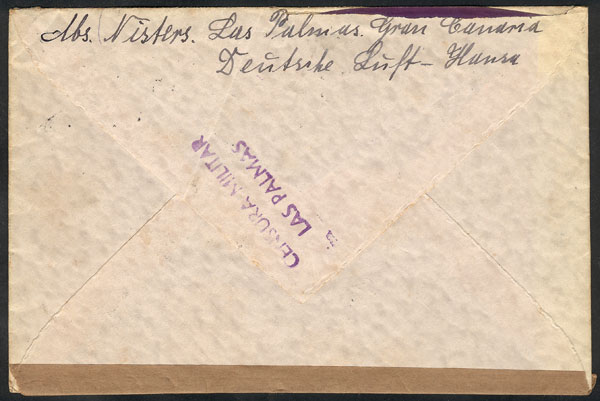 Abs. Nisters. Las Palmas. Gran Canaria
Deutsche Luft-Hansa
CENSURA MILITAR
LAS PALMAS